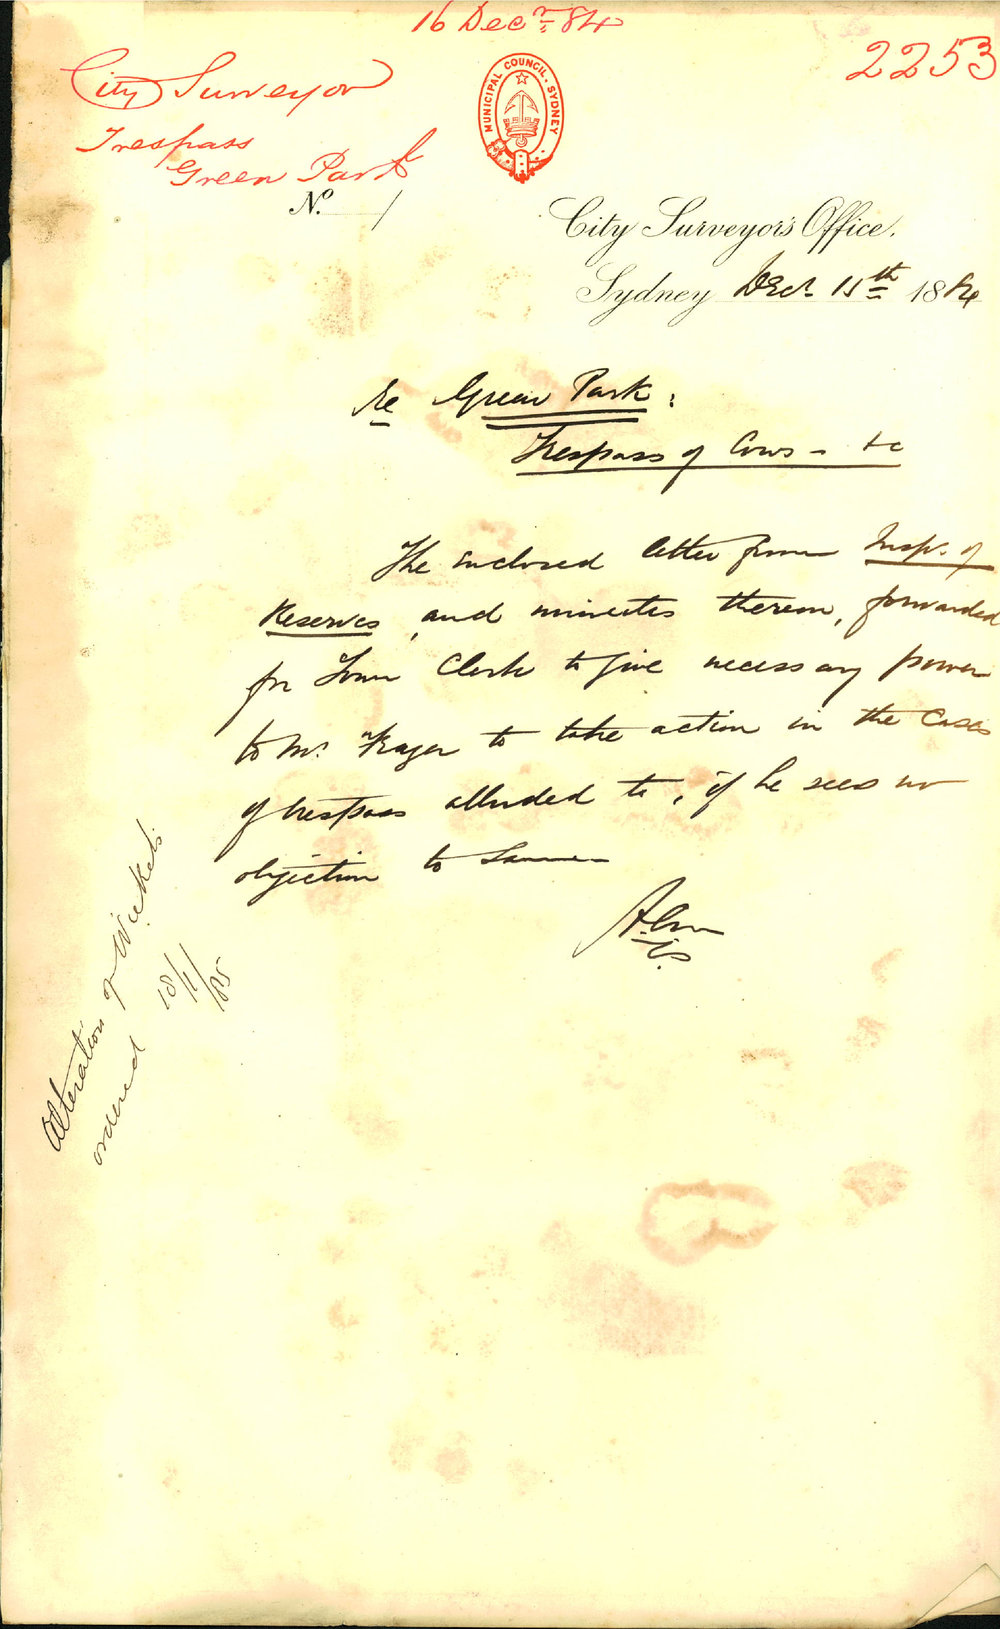 16 Decr 84
2253
City Surveyor
Trespass
Green Park
MUNICIPAL COUNCIL · SYDNEY
No.
City Surveyor's Office.
Sydney Decr. 15th 1884
Re Green Park:
Trespass of Cows - &c
The enclosed letter from Insp. of
Reserves, and minutes thereon, forwarded
for Town Clerk to give necessary power
to Mr. to take action in the cases
of trespass alluded to, if he sees no
objection to same
C.S.
Alteration of Wickets
ordered 18/11/85